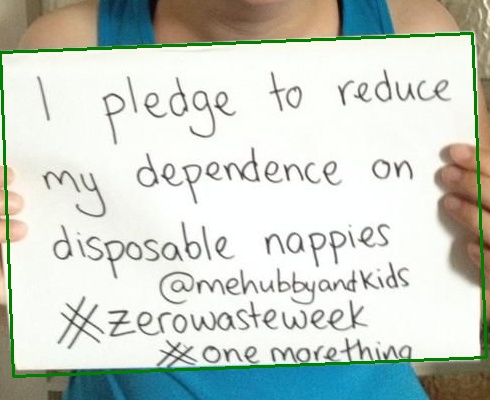 I pledge to reduce
my dependence on
disposable nappies
@mehubbyandkids
#zerowasteweek
#one morething